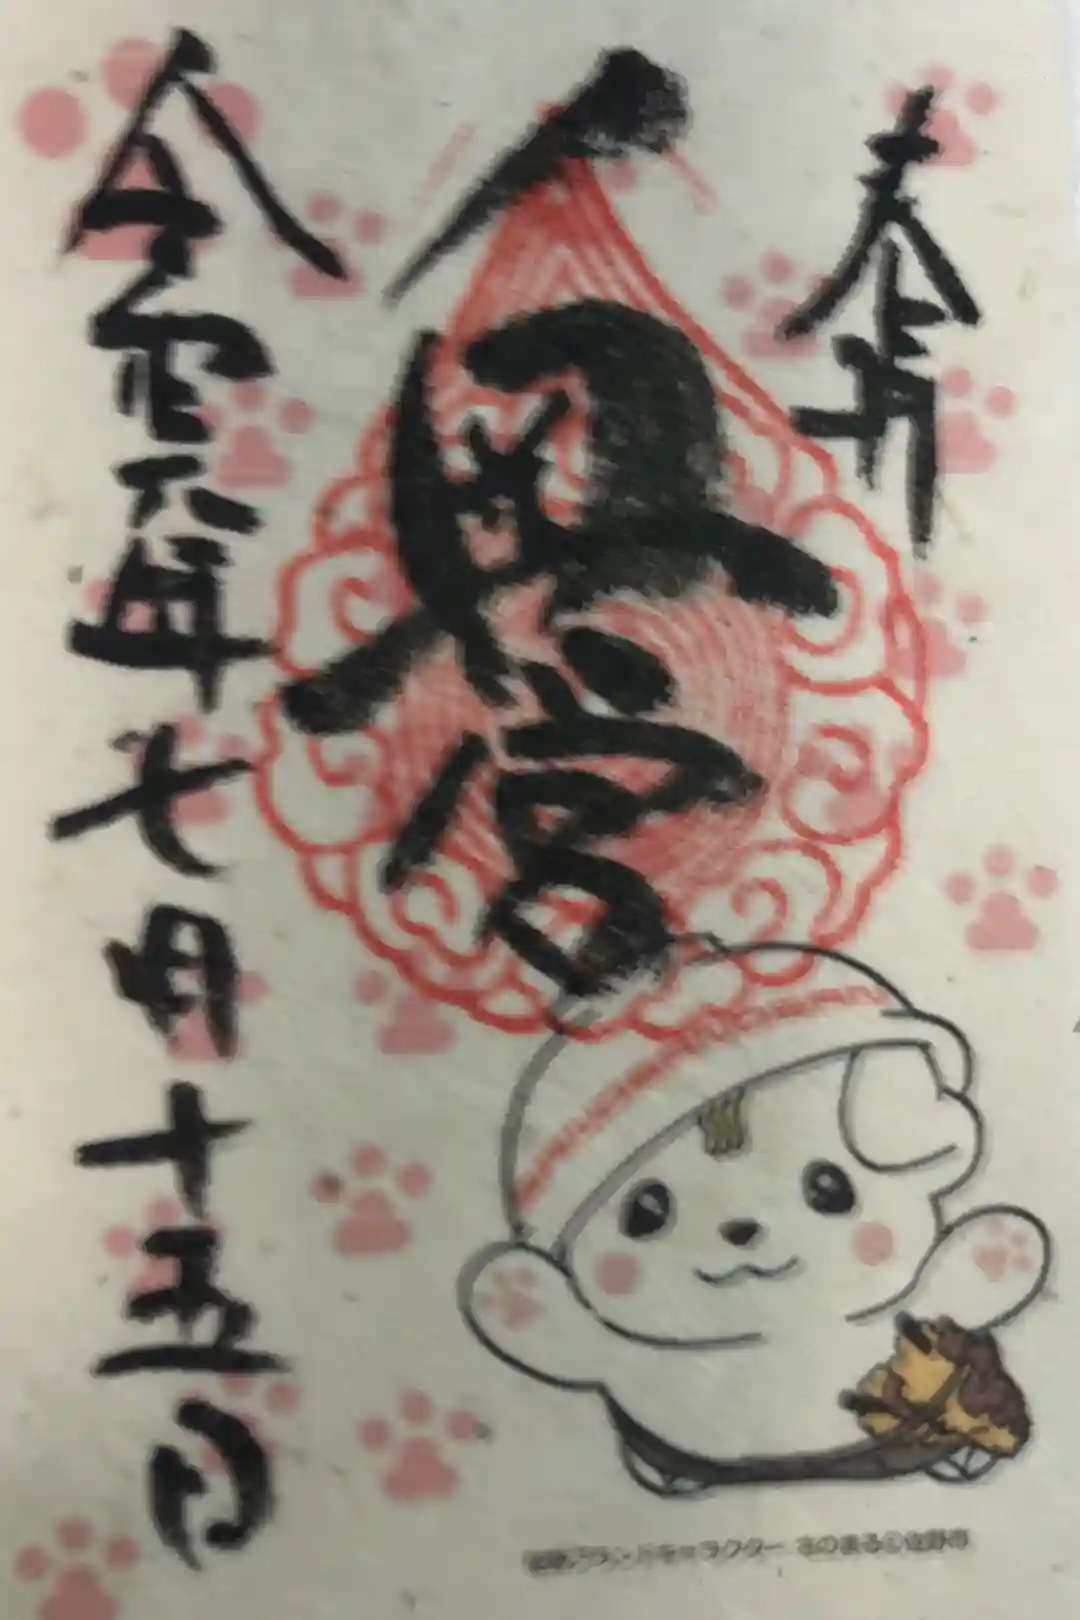 奉拝
宮
令和元年七月十五日
佐野ブランドキャラクター さのまる©佐野市